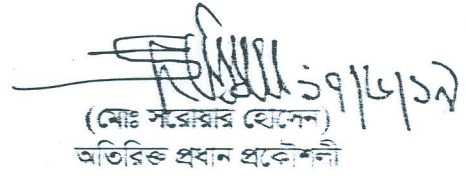 ১৭/৬/১৯
(মোঃ সরোয়ার হোসেন)
অতিরিক্ত প্রধান প্রকৌশলী